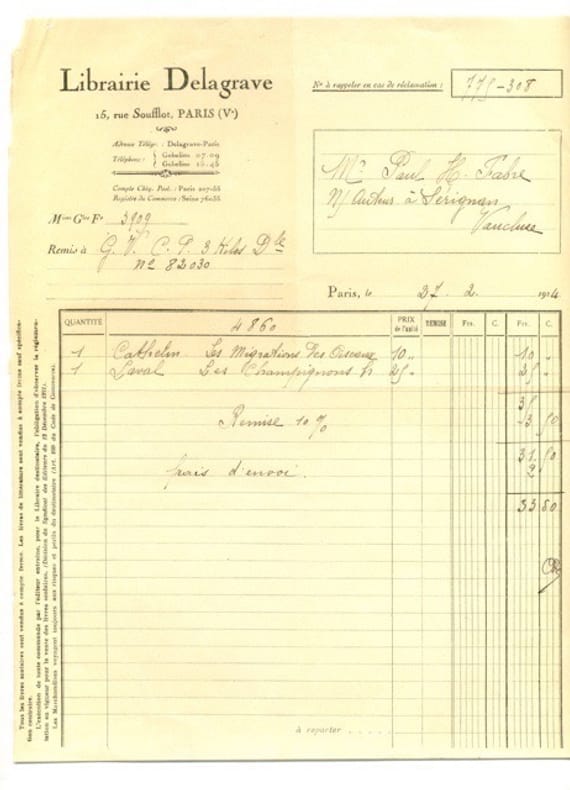 Librairie Delagrave
15, rue Soufflot, PARIS (Ve)
Adresse Télégr. : Delagrave-Paris
Téléphone : Gobelins 07.09
Gobelins 15.45
Compte Chèq. Post. : Paris 207-55
Registre du Commerce : Seine 76.055
3909
Remis à G. V. C. P. 3 kilos
No 82030
No à rappeler en cas de réclamation : 775-308
Mr Paul H. Fabre
à Sérignan
Vaucluse
Paris, le 27. 2. 19
QUANTITÉ PRIX de l'unité REMISE Frs. C. Frs. C.
4860
1 Les Migrations des Oiseaux 10 " 10 "
1 Laval Les Champignons 25 " 25 "
35
Remise 10 % 3 50
31. 50
frais d'envoi. 2
33 50
à reporter . . . . .
Tous les livres scolaires sont vendus à compte ferme. Les livres de littérature sont vendus à compte ferme sauf spécification contraire.
L'exécution de toute commande par l'éditeur entraîne, pour le Libraire destinataire, l'obligation d'observer la réglementation en vigueur pour la vente des livres scolaires. (Décision du Syndicat des Editeurs du 19 Décembre 1921).
Les Marchandises voyagent toujours aux risques et périls du destinataire (Art. 100 du Code de Commerce).